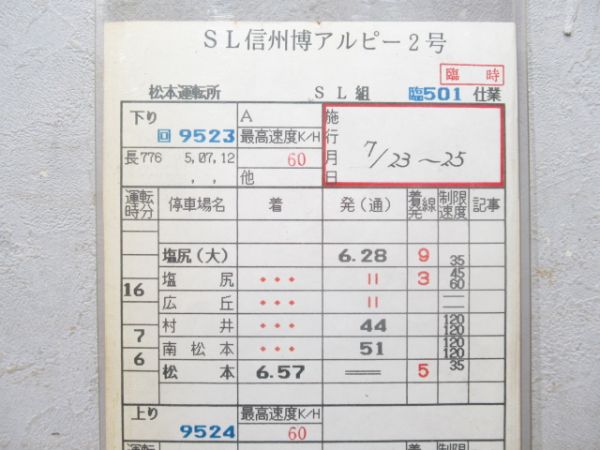 SL信州博アルピー2号
臨時
松本運転所 SL組 臨501仕業
下り A 施行月日 7/23~25
回9523 最高速度K/H
長776 5,07,12 60
, , 他
運転時分 停車場名 着 発(通) 着発線 制限速度 記事
塩尻(大) 6.28 9 35
16 塩尻 ・・・ 〃 3 45 60
広丘 ・・・ 〃
村井 ・・・ 44 120 120
7 南松本 ・・・ 51 120 120
6 松本 6.57 ═ 5 35
上り 最高速度K/H
9524 60
運転 着 制限